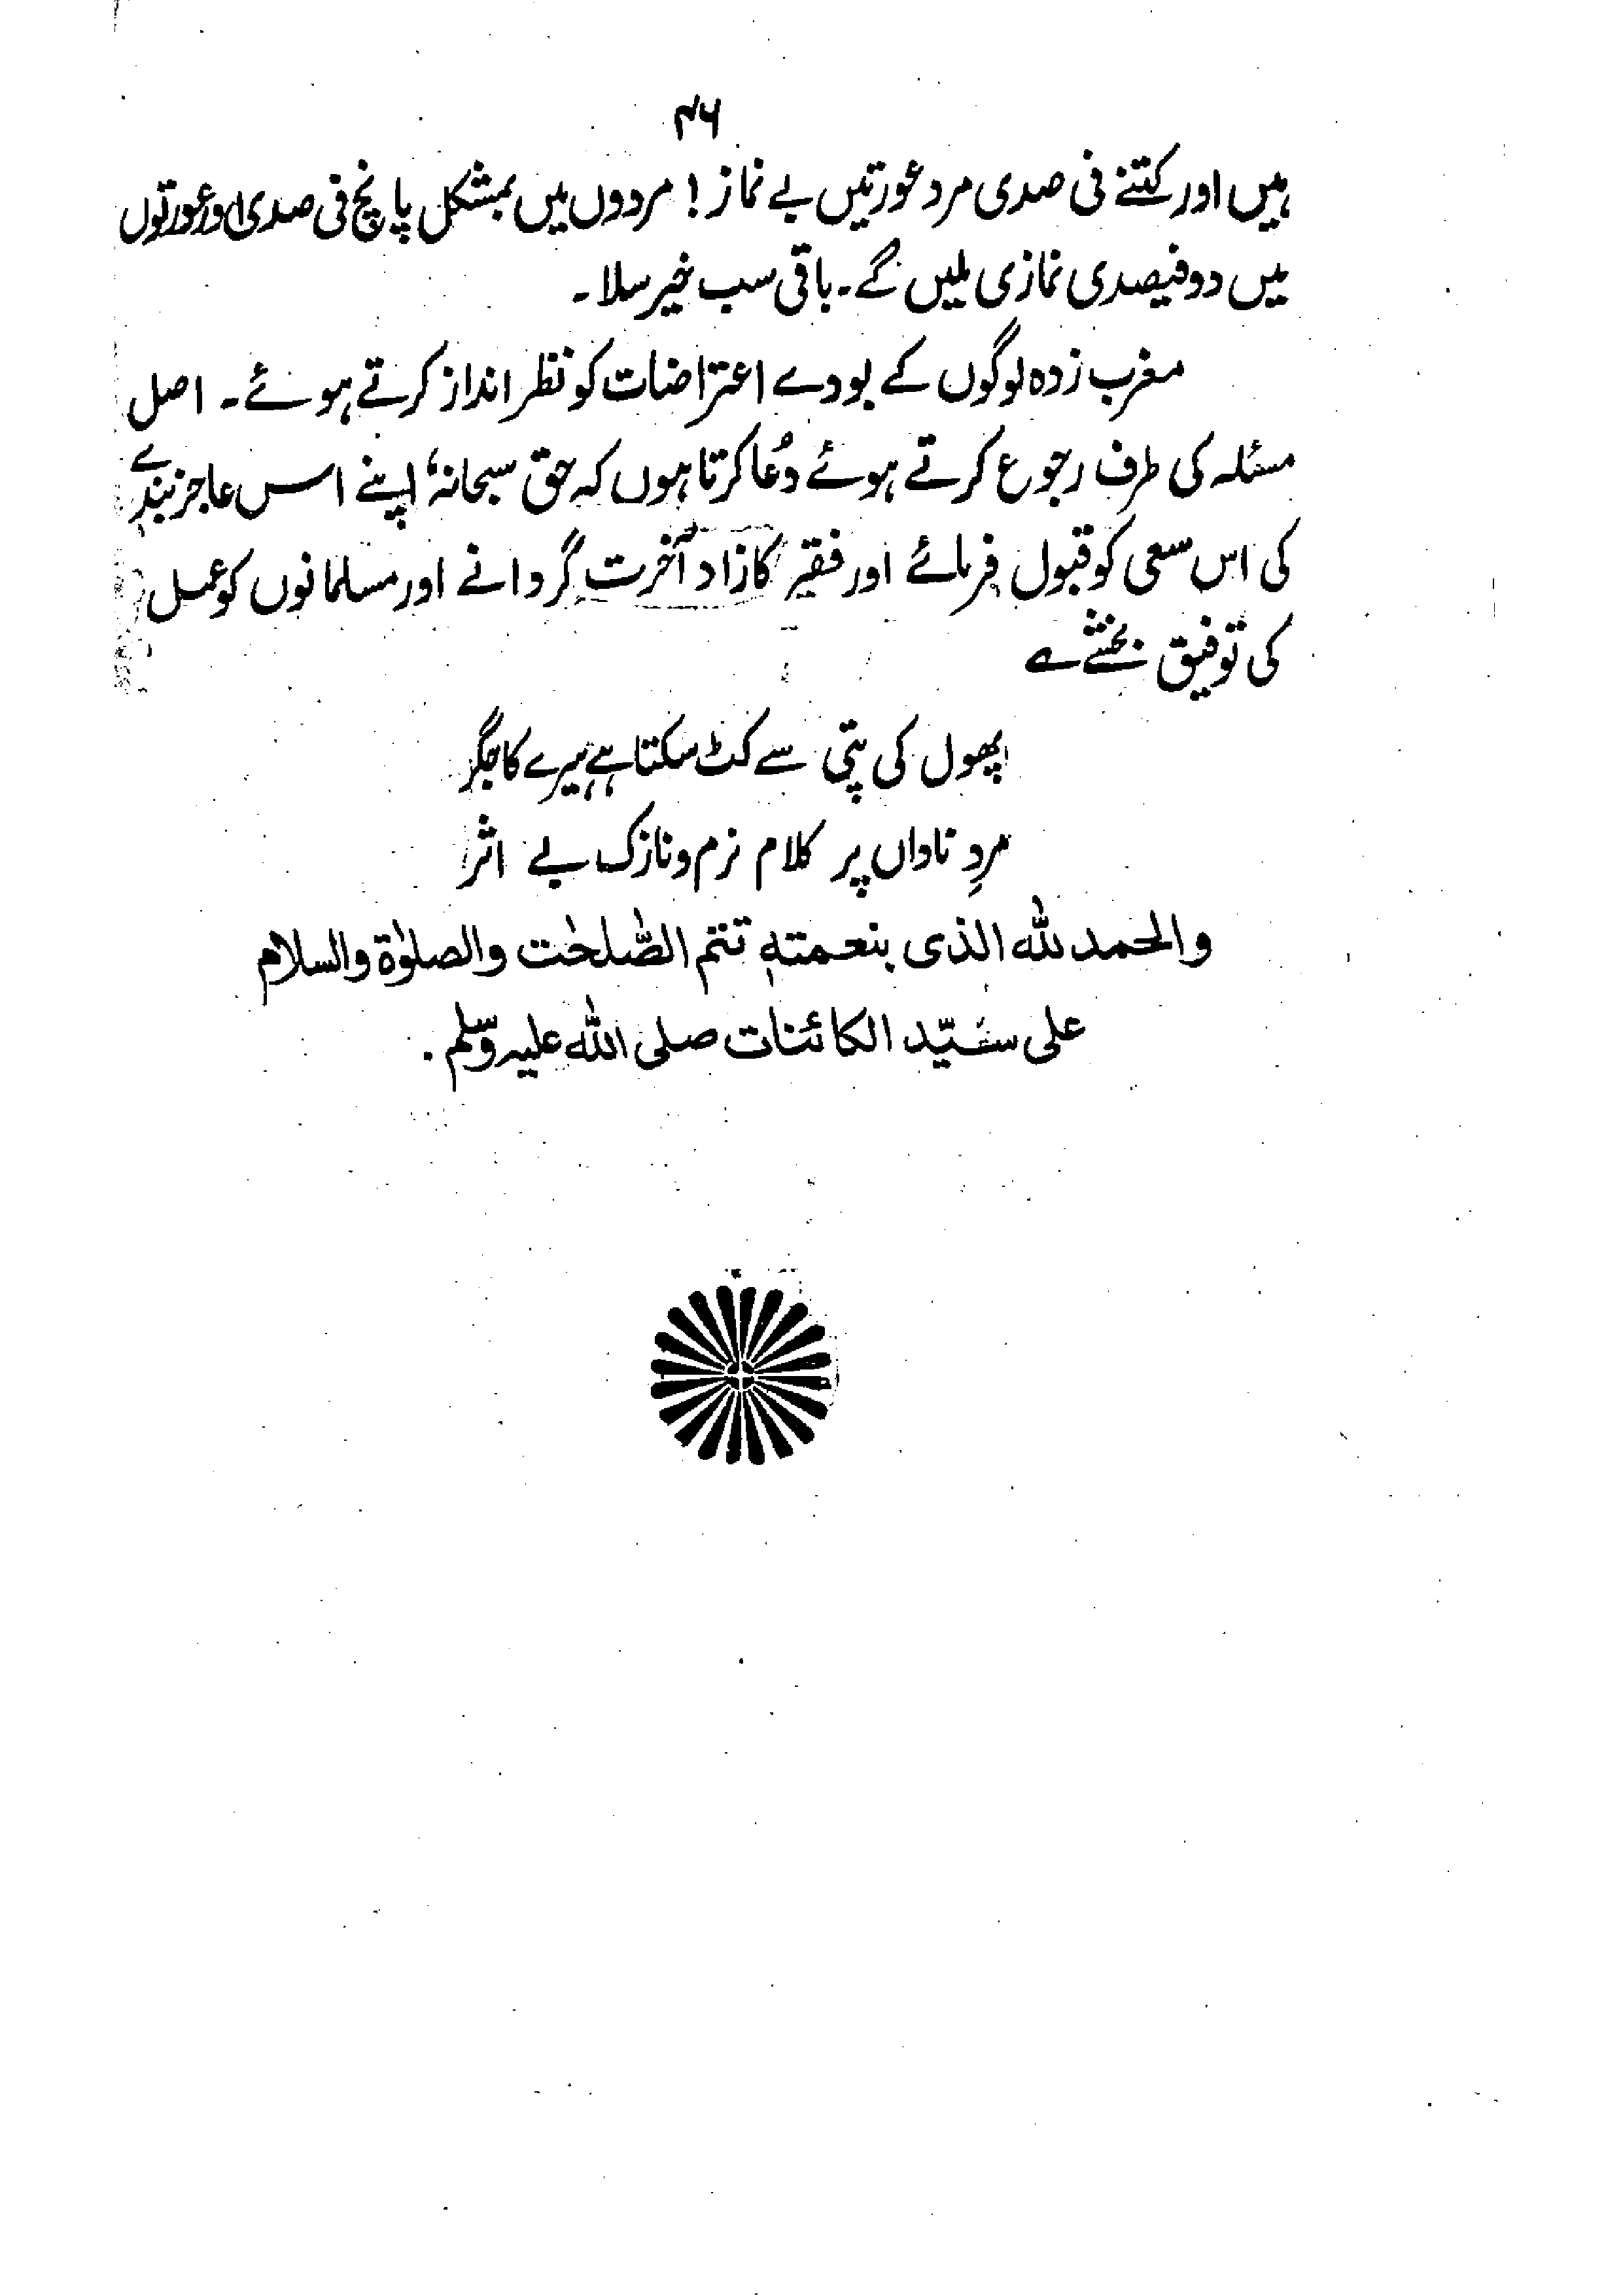 ۴۶
ہیں اور کتنے فی صدی مرد عورتیں بے نماز ! مردوں میں بمشکل پانچ فی صدی اور عورتوں
میں دو فیصدی نمازی ملیں گے۔ باقی سب خیر سلا۔
مغرب زدہ لوگوں کے بودے اعتراضات کو نظر انداز کرتے ہوئے۔ اصل
مسئلہ کی طرف رجوع کرتے ہوئے دُعا کرتا ہوں کہ حق سبحانہٗ اپنے اس عاجز بندے
کی اس سعی کو قبول فرمائے اور فقیر کا زاد آخرت گردانے اور مسلمانوں کو عمل
کی توفیق بخشے ؎
پھول کی پتی سے کٹ سکتا ہے ہیرے کا جگر
مردِ ناداں پر کلام نرم و نازک بے اثر
والحمد للہ الذی بنعمتہٖ تتم الصّٰلحٰت والصلوٰۃ والسلام
علی سیّد الکائنات صلی اللہ علیہ وسلم ۔